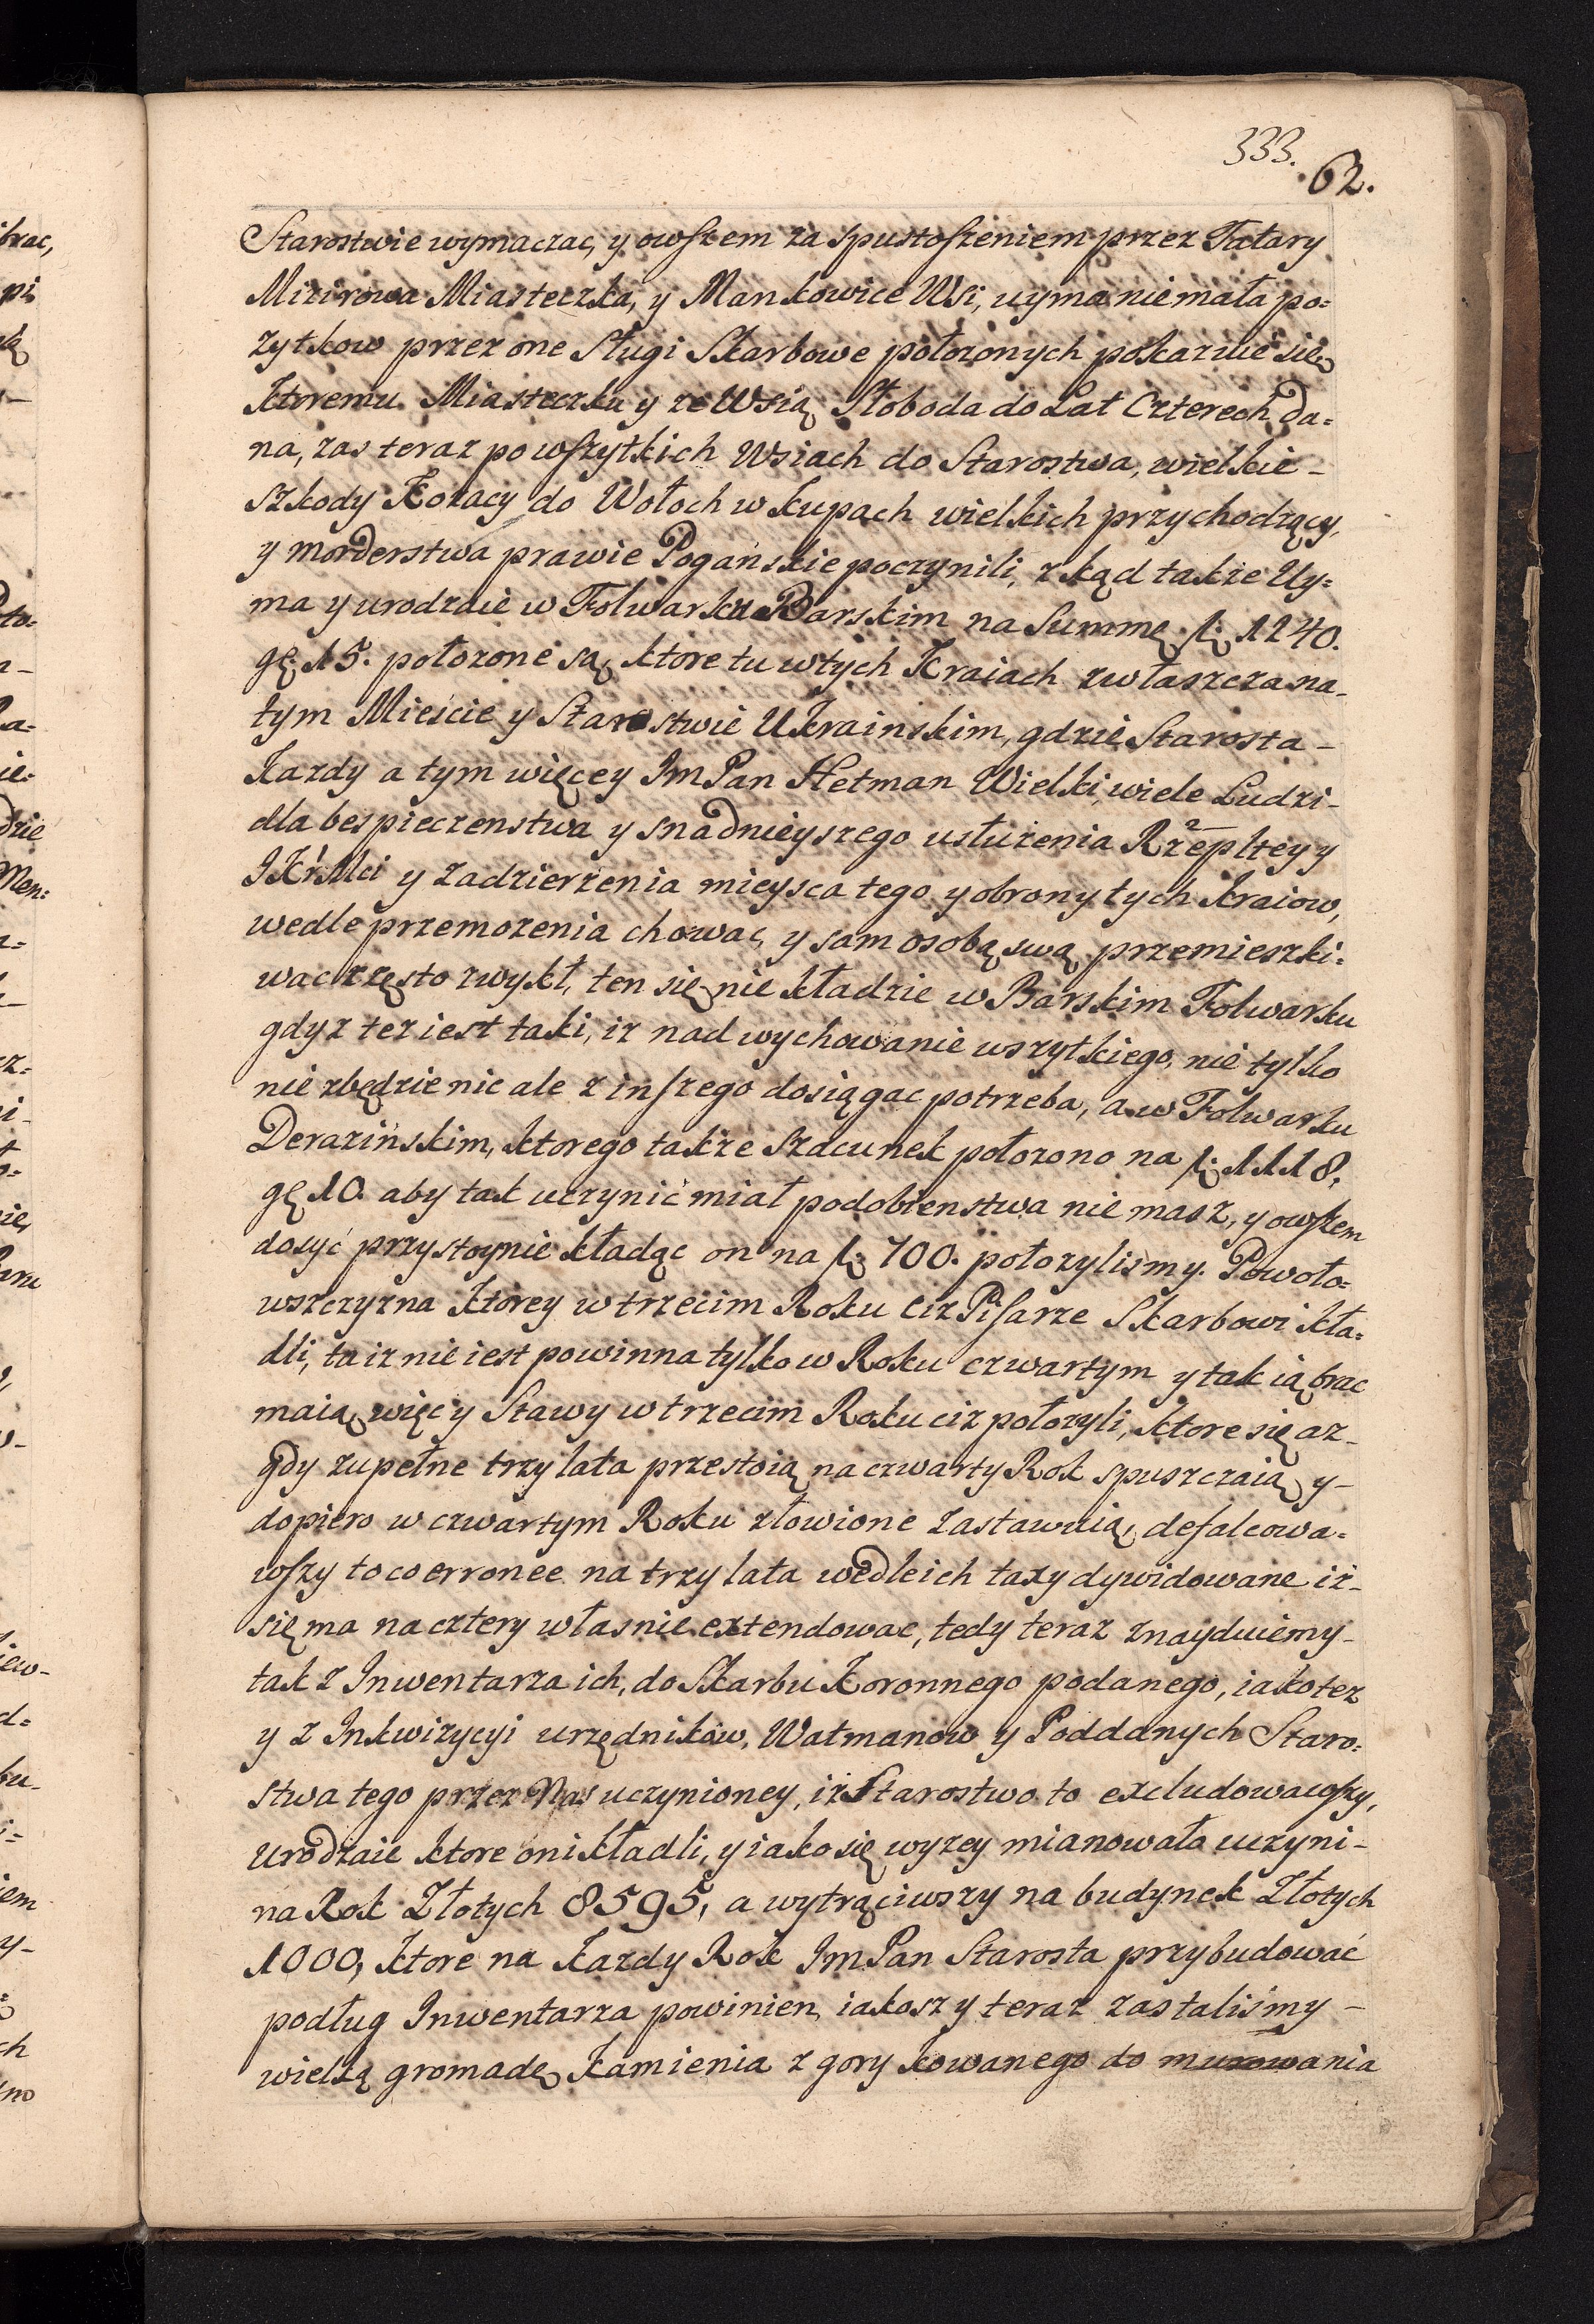 333.
62.
Starostwie wymaczac, y owszem za spustoszeniem przez Tatary
Mizirowa Miasteczka, y Mankowice Wsi, uyma niemała po=
zytkow przez one Sługi Skarbowe położonych pokazuie się
ktoremu Miasteczku y ze Wsią Słoboda do Lat Czterech da=
na, zas teraz powszytkich Wsiach do Starostwa, wielkie -
szkody Kozacy do Wołoch w kupach wielkich przychodzący,
y morderstwa prawie Pogańskie poczynili, z kąd także Uy=
ma y urodzaie w Folwarku Barskim na Summę f: 1240.
gę 15. położone są, ktore tu wtych Kraiach zwłaszcza na-
tym Mieście y Starostwie Ukrainskim, gdzie Starosta -
Kazdy a tym więcey Im Pan Hetman Wielki, wiele Ludzi -
dla bespieczenstwa y snadnieyszego usłuzenia Rzeplteyy
JKrMci y zadzierżenia mieysca tego y obrony tych kraiow,
wedle przemozenia chowac, y sam osobą swą przemieszki=
wac często zwykł, ten się nie kładzie w Barskim Folwarku
gdyz tez iest taki, iz nad wychowanie wszytkiego, nie tylko
nie zbędzie nic ale z inszego dosiągac potrzeba, a w Folwarku
Derazińskim, ktorego także szacunek położono na f: 1118,
gę 10. aby tak uczynić miał podobienstwa nie masz, y owszem
dosyć przystoynie kładąc on na f: 700. położylismy. Powoło=
wszczyzna ktorey w trzecim Roku ciz Pisarze Skarbowi kła=
dli, ta iz nie iest powinna tylko w Roku czwartym y tak ią brac
maią, więc y Stawy w trzecim Roku ciz położyli, ktore się az -
gdy zupełne trzy lata przestoią na czwarty Rok spuszczaią, y -
dopiero w czwartym Roku złowione zastawuią, defalcowa=
wszy to co erronee na trzy lata wedle ich taxy dywidowane iż -
się ma na cztery własnie extendowac, tedy teraz znayduiemy -
tak z Inwentarza ich, do Skarbu Koronnego podanego, iako tez
y z Inkwizycyi urzędników, Watmanow y Poddanych Staro=
stwa tego przez Nas uczynioney, iz Starostwo to excludowawszy,
Urodzaie ktore oni kładli, y iako się wyzey mianowało uczyni -
na Rok Złotych 8595, a wytrąciwszy na budynek Złotych
1000, ktore na Kazdy Rok Im Pan Starosta przybudować
podług Inwentarza powinien, iakosz y teraz zastaliśmy -
wielką gromadę Kamienia z gory kowanego do murowania